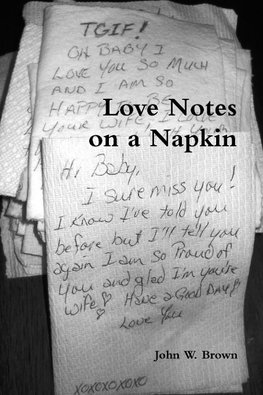 TGIF!
OH BABY I
LOVE YOU SO MUCH
AND I AM SO
HAPPY TO BE
YOUR WIFE, I
Love Notes
on a Napkin
Hi Baby,
I sure miss you!
I know I've told you
before but I'll tell you
again I am so Proud of
you and glad I'm you're
wife Have a Good Day
Love You
John W. Brown
xoxoxoxoxo